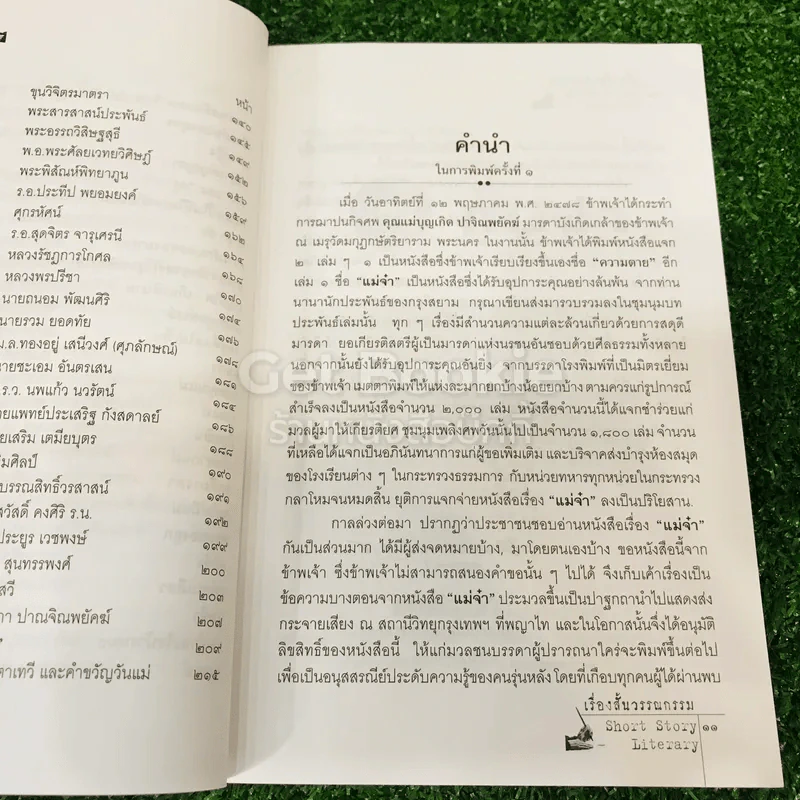 หน้า
ขุนวิจิตรมาตรา ๑๔๐
พระสารสาสน์ประพันธ์ ๑๔๕
พระอรรถวิสิษฐสุธี ๑๔๙
พ.อ.พระศัลยเวทยวิศิษฎ์ ๑๕๒
พระพิสัณห์พิทยาภูน ๑๕๖
ร.อ.ประทีป พยอมยงค์ ๑๕๙
ศุกรหัศน์ ๑๖๒
ร.อ.สุดจิตร จารุเศรนี ๑๖๔
หลวงรัชฎการโกศล ๑๖๘
หลวงพรปรีชา ๑๗๐
นายถนอม พัฒนศิริ ๑๗๔
นายรวม ยอดทัย ๑๗๖
ม.ล.ทองอยู่ เสนีวงศ์ (ศุภลักษณ์) ๑๗๘
นายชะเอม อันตรเสน ๑๘๑
ร.ว. นพแก้ว นวรัตน์ ๑๘๔
ายแพทย์ประเสริฐ กังสดาลย์ ๑๘๖
ยเสริม เตมียบุตร ๑๘๘
ิมศิลป์ ๑๙๐
บรรณสิทธิ์วรสาสน์ ๑๙๑
สวัสดิ์ คงศิริ ร.น. ๑๙๒
ประยูร เวชพงษ์ ๑๙๙
สุนทรพงศ์ ๒๐๐
สวี ๒๐๓
ภา ปาณจิณพยัคฆ์ ๒๐๗
๒๐๙
ตาเทวี และคำขวัญวันแม่ ๒๑๕
คำนำ
ในการพิมพ์ครั้งที่ ๑
เมื่อ วันอาทิตย์ที่ ๑๒ พฤษภาคม พ.ศ. ๒๔๗๘ ข้าพเจ้าได้กระทำ
การฌาปนกิจศพ คุณแม่บุญเกิด ปาจิณพยัคฆ์ มารดาบังเกิดเกล้าของข้าพเจ้า
ณ เมรุวัดมกุฎกษัตริยาราม พระนคร ในงานนั้น ข้าพเจ้าได้พิมพ์หนังสือแจก
๒ เล่ม ๆ ๑ เป็นหนังสือซึ่งข้าพเจ้าเรียบเรียงขึ้นเองชื่อ “ความตาย” อีก
เล่ม ๑ ชื่อ “แม่จ๋า” เป็นหนังสือซึ่งได้รับอุปการะคุณอย่างล้นพ้น จากท่าน
นานานักประพันธ์ของกรุงสยาม กรุณาเขียนส่งมารวบรวมลงในชุมนุมบท
ประพันธ์เล่มนั้น ทุก ๆ เรื่องมีสำนวนความแต่ละล้วนเกี่ยวด้วยการสดุดี
มารดา ยอเกียรติสตรีผู้เป็นมารดาแห่งนรชนอันชอบด้วยศีลธรรมทั้งหลาย
นอกจากนั้นยังได้รับอุปการะคุณอันยิ่ง จากบรรดาโรงพิมพ์ที่เป็นมิตรเยี่ยม
ของข้าพเจ้า เมตตาพิมพ์ให้แห่งละมากยกบ้างน้อยยกบ้าง ตามควรแก่รูปการณ์
สำเร็จลงเป็นหนังสือจำนวน ๒,๐๐๐ เล่ม หนังสือจำนวนนี้ได้แจกชำร่วยแก่
มวลผู้มาให้เกียรติยศ ชุมนุมเพลิงศพวันนั้นไปเป็นจำนวน ๑,๘๐๐ เล่ม จำนวน
ที่เหลือได้แจกเป็นอภินันทนาการแก่ผู้ขอเพิ่มเติม และบริจาคส่งบำรุงห้องสมุด
ของโรงเรียนต่าง ๆ ในกระทรวงธรรมการ กับหน่วยทหารทุกหน่วยในกระทรวง
กลาโหมจนหมดสิ้น ยุติการแจกจ่ายหนังสือเรื่อง “แม่จ๋า” ลงเป็นปริโยสาน.
กาลล่วงต่อมา ปรากฏว่าประชาชนชอบอ่านหนังสือเรื่อง “แม่จ๋า”
กันเป็นส่วนมาก ได้มีผู้ส่งจดหมายบ้าง, มาโดยตนเองบ้าง ขอหนังสือนี้จาก
ข้าพเจ้า ซึ่งข้าพเจ้าไม่สามารถสนองคำขอนั้น ๆ ไปได้ จึงเก็บเค้าเรื่องเป็น
ข้อความบางตอนจากหนังสือ “แม่จ๋า” ประมวลขึ้นเป็นปาฐกถานำไปแสดงส่ง
กระจายเสียง ณ สถานีวิทยุกรุงเทพฯ ที่พญาไท และในโอกาสนั้นจึงได้อนุมัติ
ลิขสิทธิ์ของหนังสือนี้ ให้แก่มวลชนบรรดาผู้ปรารถนาใคร่จะพิมพ์ขึ้นต่อไป
เพื่อเป็นอนุสสรณีย์ประดับความรู้ของคนรุ่นหลัง โดยที่เกือบทุกคนผู้ได้ผ่านพบ
เรื่องสั้นวรรณกรรม
Short Story ๑๑
Literary